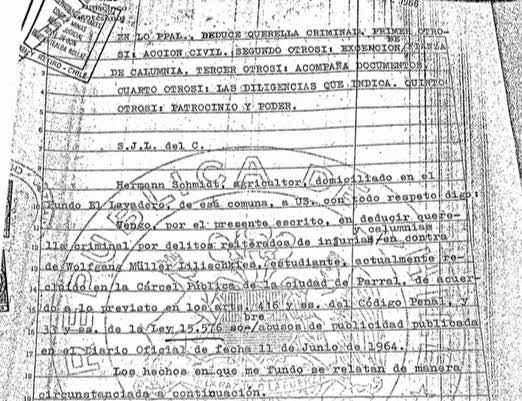 1966
EN LO PPAL. DEDUCE QUERELLA CRIMINAL. PRIMER OTRO-
SI: ACCION CIVIL. SEGUNDO OTROSI: EXCENCION FIANZA
DE
DE CALUMNIA. TERCER OTROSI: ACOMPAÑA DOCUMENTOS.
CUARTO OTROSI: LAS DILIGENCIAS QUE INDICA. QUINTO
OTROSI: PATROCINIO Y PODER.
S.J.L. del C.
Hermann Schmidt, agricultor, domiciliado en el
Fundo El Lavadero, de esa comuna, a US. con todo respeto digo:
Vengo, por el presente escrito, en deducir quere-
y calumnias
lla criminal por delitos reiterados de injurias/en contra
de Wolfgang Müller Lilischkies, estudiante, actualmente re-
cluído en la Cárcel Pública de la ciudad de Parral, de acuer-
do a lo previsto en los arts. 416 y ss. del Código Penal, y
bre
33 y ss. de la Ley 15.576 so-/abusos de publicidad publicada
en el Diario Oficial de fecha 11 de Junio de 1964.
Los hechos en que me fundo se relatan de manera
circunstanciada a continuación.